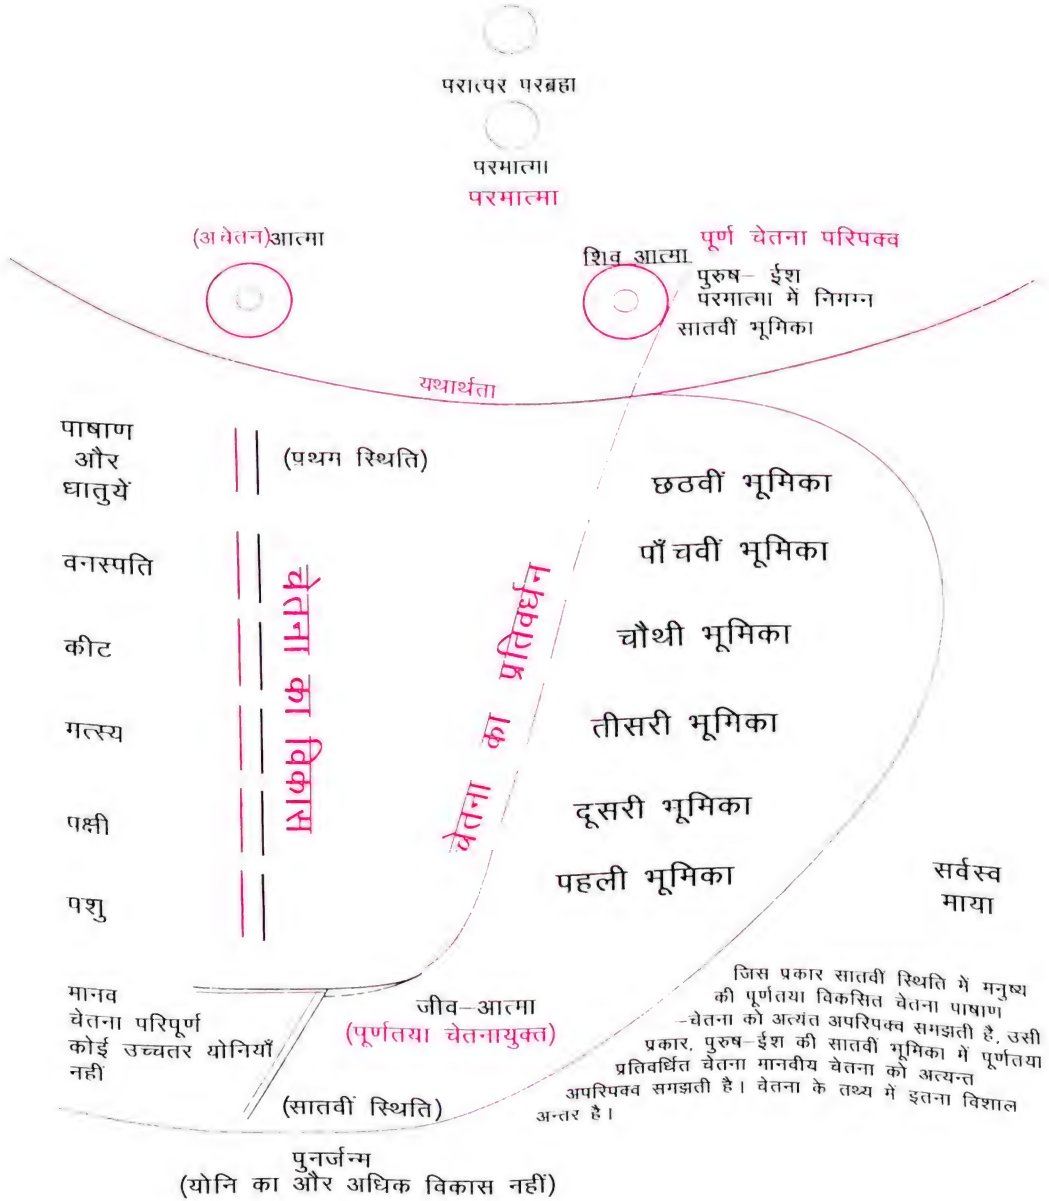 परात्पर परब्रहा
परमात्मा
परमात्मा
(अचेतन)आत्मा
शिव आत्मा
पूर्ण चेतना परिपक्व
पुरुष- ईश
परमात्मा में निमग्न
सातवीं भूमिका
यथार्थता
पाषाण
और
धातुयें
(प्रथम स्थिति)
वनस्पति
कीट
मत्स्य
पक्षी
पशु
चेतना का विकास
चेतना का प्रतिवर्धन
छठवीं भूमिका
पाँचवीं भूमिका
चौथी भूमिका
तीसरी भूमिका
दूसरी भूमिका
पहली भूमिका
सर्वस्व
माया
मानव
चेतना परिपूर्ण
कोई उच्चतर योनियाँ
नहीं
जीव-आत्मा
(पूर्णतया चेतनायुक्त)
(सातवीं स्थिति)
जिस प्रकार सातवीं स्थिति में मनुष्य
की पूर्णतया विकसित चेतना पाषाण
-चेतना को अत्यंत अपरिपक्व समझती है, उसी
प्रकार, पुरुष-ईश की सातवीं भूमिका में पूर्णतया
प्रतिवर्धित चेतना मानवीय चेतना को अत्यन्त
अपरिपक्व समझती है। चेतना के तथ्य में इतना विशाल
अन्तर है।
पुनर्जन्म
(योनि का और अधिक विकास नहीं)